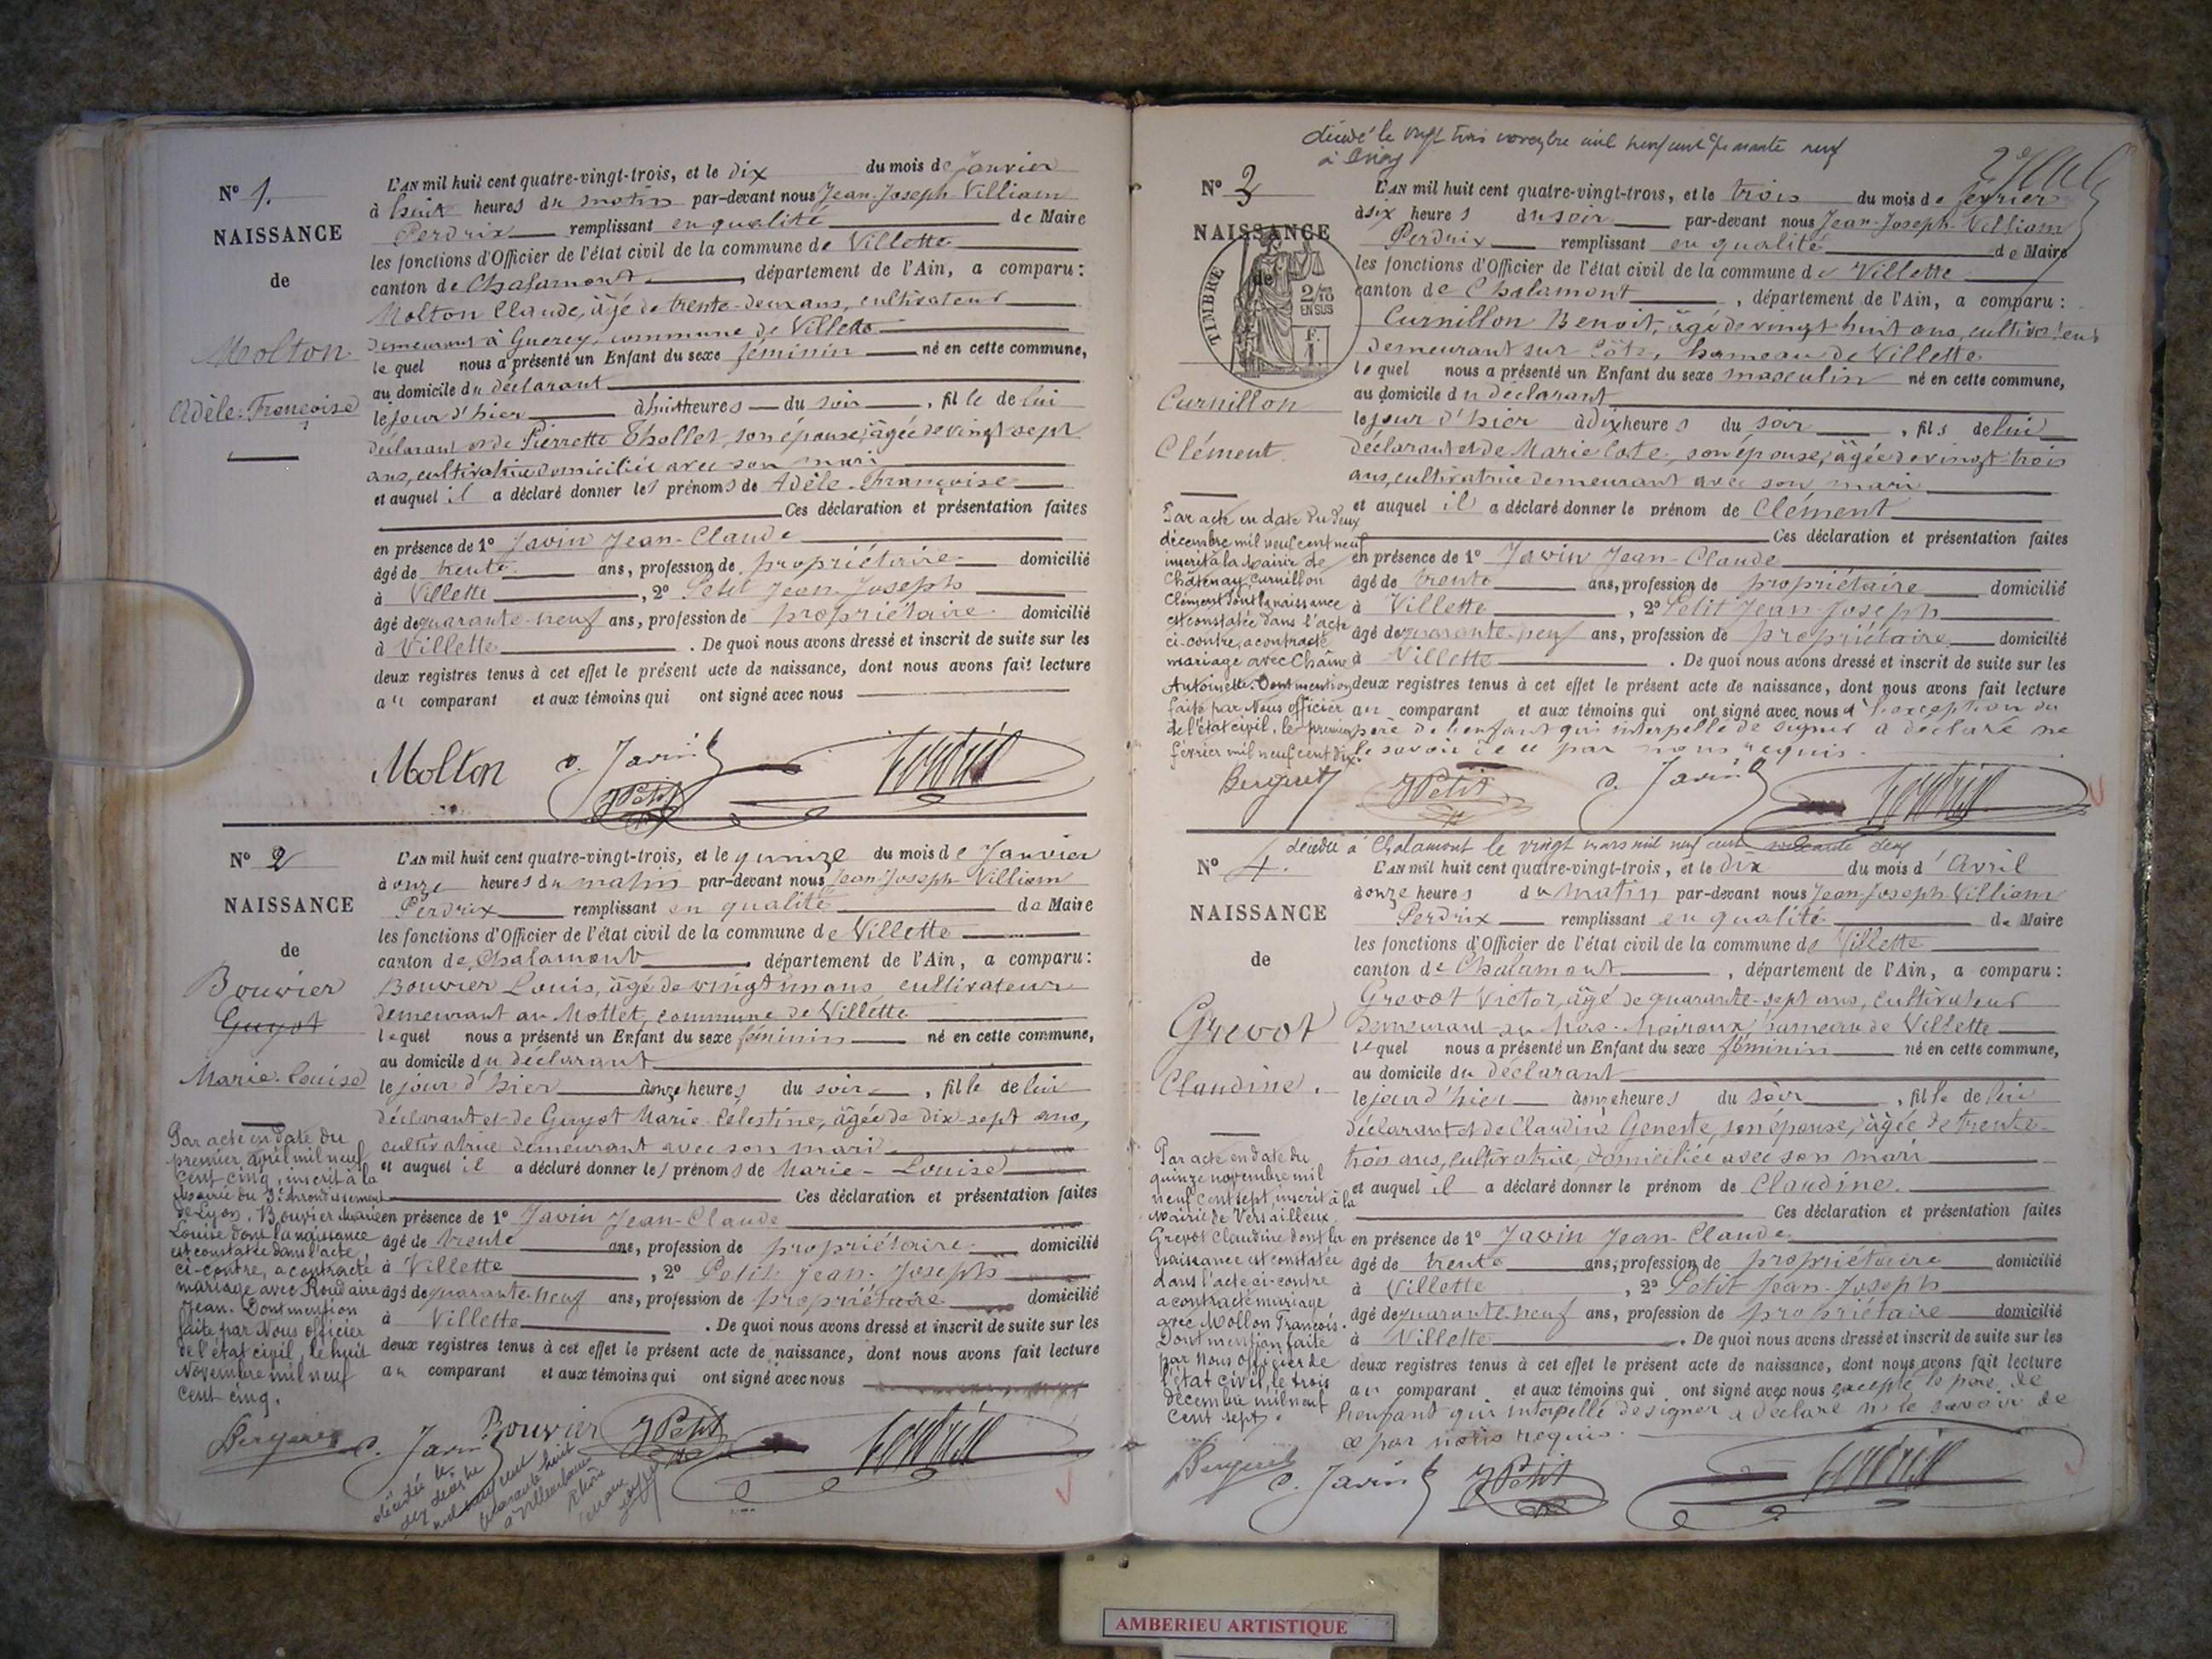 N° 1.
NAISSANCE
de
Molton
Adèle-Françoise
L'AN mil huit cent quatre-vingt-trois, et le dix du mois de Janvier
à huit heures du matin par-devant nous Jean-Joseph-Villiam
Perdrix remplissant en qualité de Maire
les fonctions d'Officier de l'état civil de la commune de Villette
canton de Chalamont, département de l'Ain, a comparu :
Molton Claude, âgé de trente-deux ans, cultivateur
demeurant à Guerey, commune de Villette
lequel nous a présenté un Enfant du sexe féminin né en cette commune,
au domicile du déclarant
le jour d'hier à huit heures du soir, fille de lui
déclarant et de Pierrette Thollet, son épouse, âgée de vingt sept
ans, cultivatrice domiciliée avec son mari
et auquel il a déclaré donner les prénoms de Adèle-Françoise
Ces déclaration et présentation faites
en présence de 1° Javin Jean-Claude
âgé de trente ans, profession de propriétaire domicilié
à Villette, 2° Petit Jean-Joseph
âgé de quarante-neuf ans, profession de propriétaire domicilié
à Villette. De quoi nous avons dressé et inscrit de suite sur les
deux registres tenus à cet effet le présent acte de naissance, dont nous avons fait lecture
au comparant et aux témoins qui ont signé avec nous
Molton c. Javin J Petit Perdrix
N° 2
NAISSANCE
de
Bouvier
Guyot
Marie-Louise
Par acte en date du
premier avril mil neuf
cent cinq, inscrit à la
Mairie du 3e Arrondissement
de Lyon, Bouvier Marie
Louise dont la naissance
est constatée dans l'acte
ci-contre, a contracté
mariage avec Roudaire
Jean. Dont mention
faite par Nous officier
de l'état civil, le huit
Novembre mil neuf
cent cinq.
L'AN mil huit cent quatre-vingt-trois, et le quinze du mois de Janvier
à onze heures du matin par-devant nous Jean-Joseph-Villiam
Perdrix remplissant en qualité de Maire
les fonctions d'Officier de l'état civil de la commune de Villette
canton de Chalamont, département de l'Ain, a comparu :
Bouvier Louis, âgé de vingt un ans, cultivateur
demeurant au Mollet, commune de Villette
lequel nous a présenté un Enfant du sexe féminin né en cette commune,
au domicile du déclarant
le jour d'hier à onze heures du soir, fille de lui
déclarant et de Guyot Marie-Célestine, âgée de dix-sept ans,
cultivatrice demeurant avec son mari
et auquel il a déclaré donner les prénoms de Marie-Louise
Ces déclaration et présentation faites
en présence de 1° Javin Jean-Claude
âgé de trente ans, profession de propriétaire domicilié
à Villette, 2° Petit Jean-Joseph
âgé de quarante-neuf ans, profession de propriétaire domicilié
à Villette. De quoi nous avons dressé et inscrit de suite sur les
deux registres tenus à cet effet le présent acte de naissance, dont nous avons fait lecture
au comparant et aux témoins qui ont signé avec nous
Bergeret c. Javin Bouvier J Petit Perdrix
décédée le
mil neuf cent
quarante huit
à Villeurbanne
Rhône
décédé le vingt trois novembre mil neuf cent quarante neuf
N° 3
NAISSANCE
de
TIMBRE
2/10
EN SUS
F.
1
Curnillon
Clément
Par acte en date du deux
décembre mil neuf cent neuf
inscrit à la Mairie de
Châtenay, Curnillon
Clément dont la naissance
est constatée dans l'acte
ci-contre, a contracté
mariage avec Chaîne
Antoinette. Dont mention
faite par Nous officier
de l'état civil, le premier
février mil neuf cent dix.
Bergeret
L'AN mil huit cent quatre-vingt-trois, et le trois du mois de février
à six heures du soir par-devant nous Jean-Joseph-Villiam
Perdrix remplissant en qualité de Maire
les fonctions d'Officier de l'état civil de la commune de Villette
canton de Chalamont, département de l'Ain, a comparu :
Curnillon Benoit, âgé de vingt huit ans, cultivateur
demeurant sur Côte, hameau de Villette
lequel nous a présenté un Enfant du sexe masculin né en cette commune,
au domicile du déclarant
le jour d'hier à dix heures du soir, fils de lui
déclarant et de Marie Cote, son épouse, âgée de vingt trois
ans, cultivatrice demeurant avec son mari
et auquel il a déclaré donner le prénom de Clément
Ces déclaration et présentation faites
en présence de 1° Javin Jean-Claude
âgé de trente ans, profession de propriétaire domicilié
à Villette, 2° Petit Jean-Joseph
âgé de quarante-neuf ans, profession de propriétaire domicilié
à Villette. De quoi nous avons dressé et inscrit de suite sur les
deux registres tenus à cet effet le présent acte de naissance, dont nous avons fait lecture
au comparant et aux témoins qui ont signé avec nous à l'exception du
père de l'enfant qui interpellé de signer a déclaré ne
le savoir de ce par nous requis.
J Petit c. Javin Perdrix
décédée à Chalamont le vingt mars mil neuf cent soixante deux
N° 4.
NAISSANCE
de
Grevot
Claudine.
Par acte en date du
quinze novembre mil
neuf cent sept, inscrit à la
Mairie de Versailleux
Grevot Claudine dont la
naissance est constatée
dans l'acte ci-contre
a contracté mariage
avec Mollon François.
Dont mention faite
par Nous officier de
l'état civil, le trois
décembre mil neuf
cent sept.
Bergeret
L'AN mil huit cent quatre-vingt-trois, et le dix du mois d'Avril
à onze heures du matin par-devant nous Jean-Joseph-Villiam
Perdrix remplissant en qualité de Maire
les fonctions d'Officier de l'état civil de la commune de Villette
canton de Chalamont, département de l'Ain, a comparu :
Grevot Victor, âgé de quarante-sept ans, cultivateur
demeurant au Mas-Moiroux, hameau de Villette
lequel nous a présenté un Enfant du sexe féminin né en cette commune,
au domicile du déclarant
le jour d'hier à onze heures du soir, fille de lui
déclarant et de Claudine Geneste, son épouse, âgée de trente-
trois ans, cultivatrice, domiciliée avec son mari
et auquel il a déclaré donner le prénom de Claudine.
Ces déclaration et présentation faites
en présence de 1° Javin Jean-Claude
âgé de trente ans, profession de propriétaire domicilié
à Villette, 2° Petit Jean-Joseph
âgé de quarante-neuf ans, profession de propriétaire domicilié
à Villette. De quoi nous avons dressé et inscrit de suite sur les
deux registres tenus à cet effet le présent acte de naissance, dont nous avons fait lecture
au comparant et aux témoins qui ont signé avec nous excepté le père de
l'enfant qui interpellé de signer a déclaré ne le savoir de
ce par nous requis.
c. Javin J Petit Perdrix
AMBERIEU ARTISTIQUE